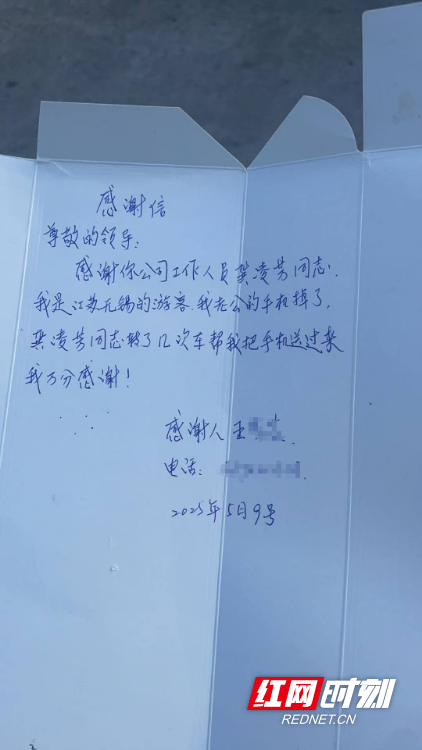 感谢信
尊敬的领导:
感谢你公司工作人员龚凌芳同志.
我是江苏无锡的游客.我老公的手机掉了,
龚凌芳同志转了几次车帮我把手机送过来
我万分感谢!
感谢人 王
电话:
2025年5月9号
红网时刻
REDNET.CN